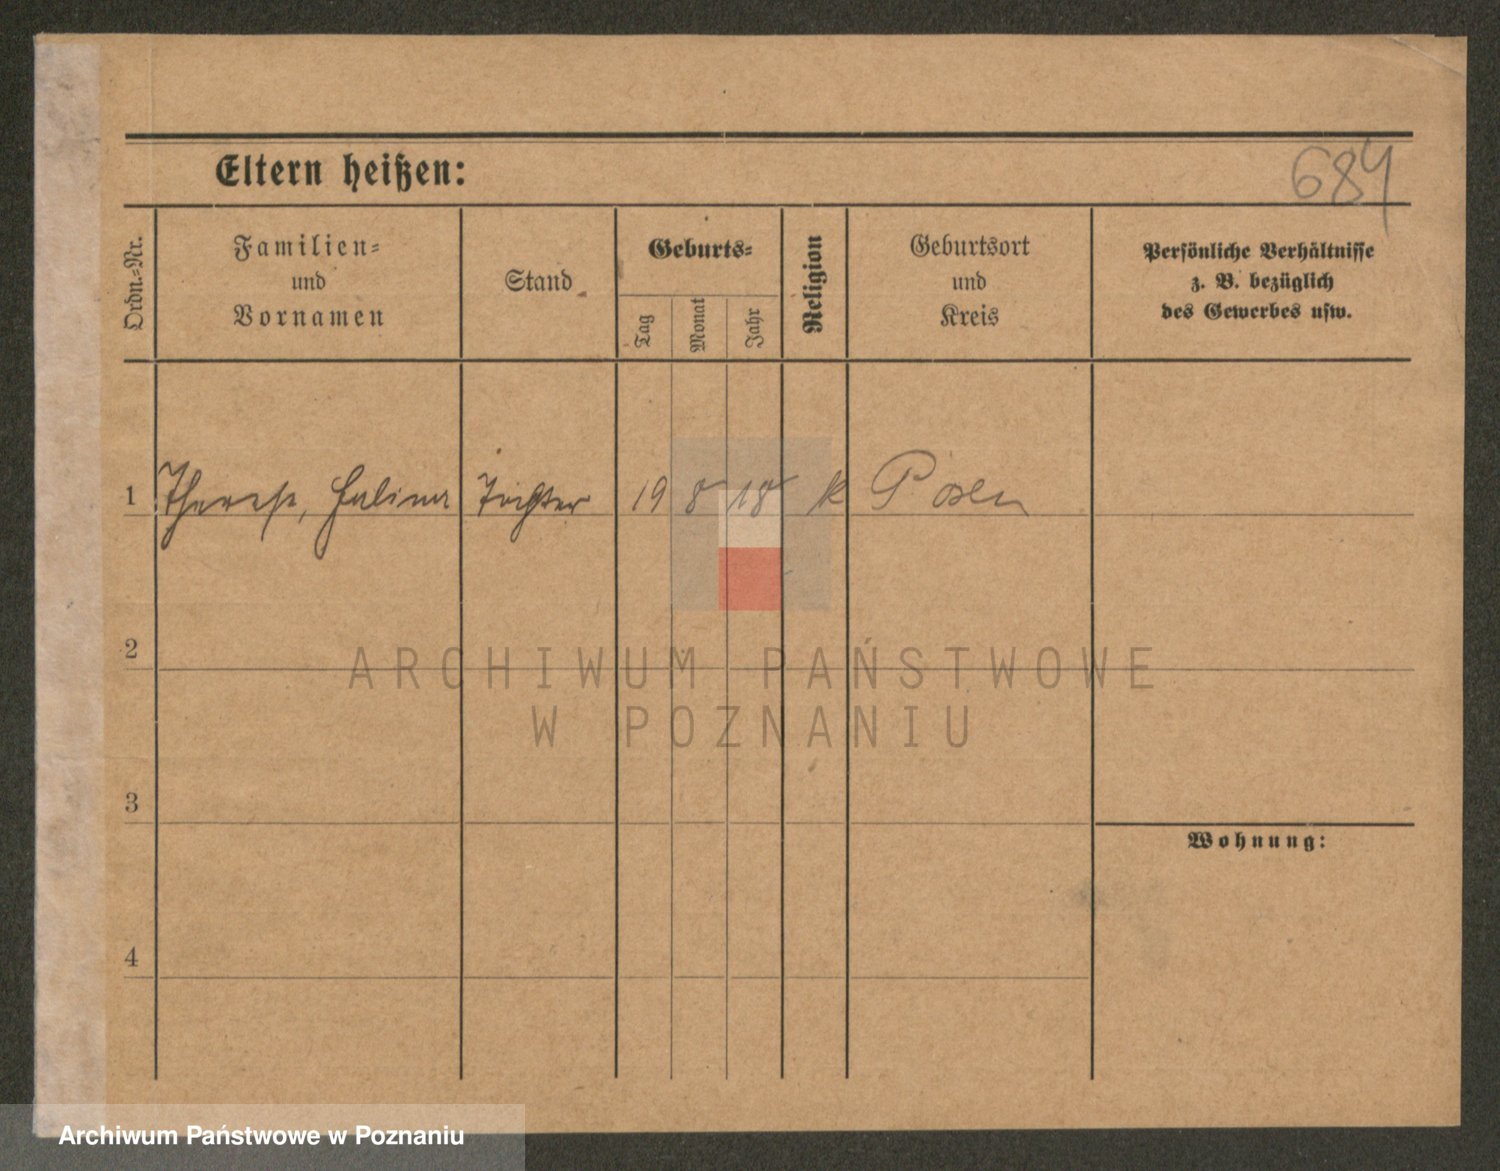 684
Eltern heißen:
Ordn.=Nr.
Familien=
und
Vornamen
Stand
Geburts=
Tag
Monat
Jahr
Religion
Geburtsort
und
Kreis
Persönliche Verhältnisse
z. B. bezüglich
des Gewerbes usw.
1 Therese, Halina Tochter 19 8 18 k Posen
2
3
4
Wohnung:
ARCHIWUM PAŃSTWOWE
W POZNANIU
Archiwum Państwowe w Poznaniu